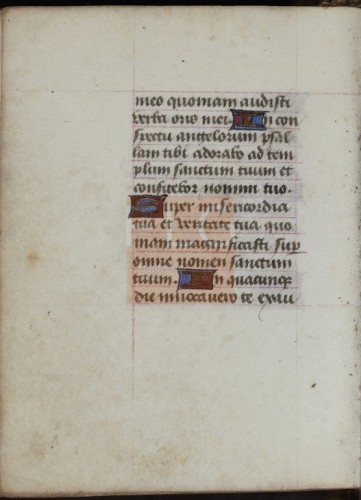 meo quoniam audisti
verba oris mei. In con
spectu angelorum psal
lam tibi adorabo ad tem
plum sanctum tuum et
confitebor nomini tuo.
Super misericordia
tua et veritate tua quo
niam magnificasti sup
omne nomen sanctum
tuum. In quacunq
die invocavero te exau